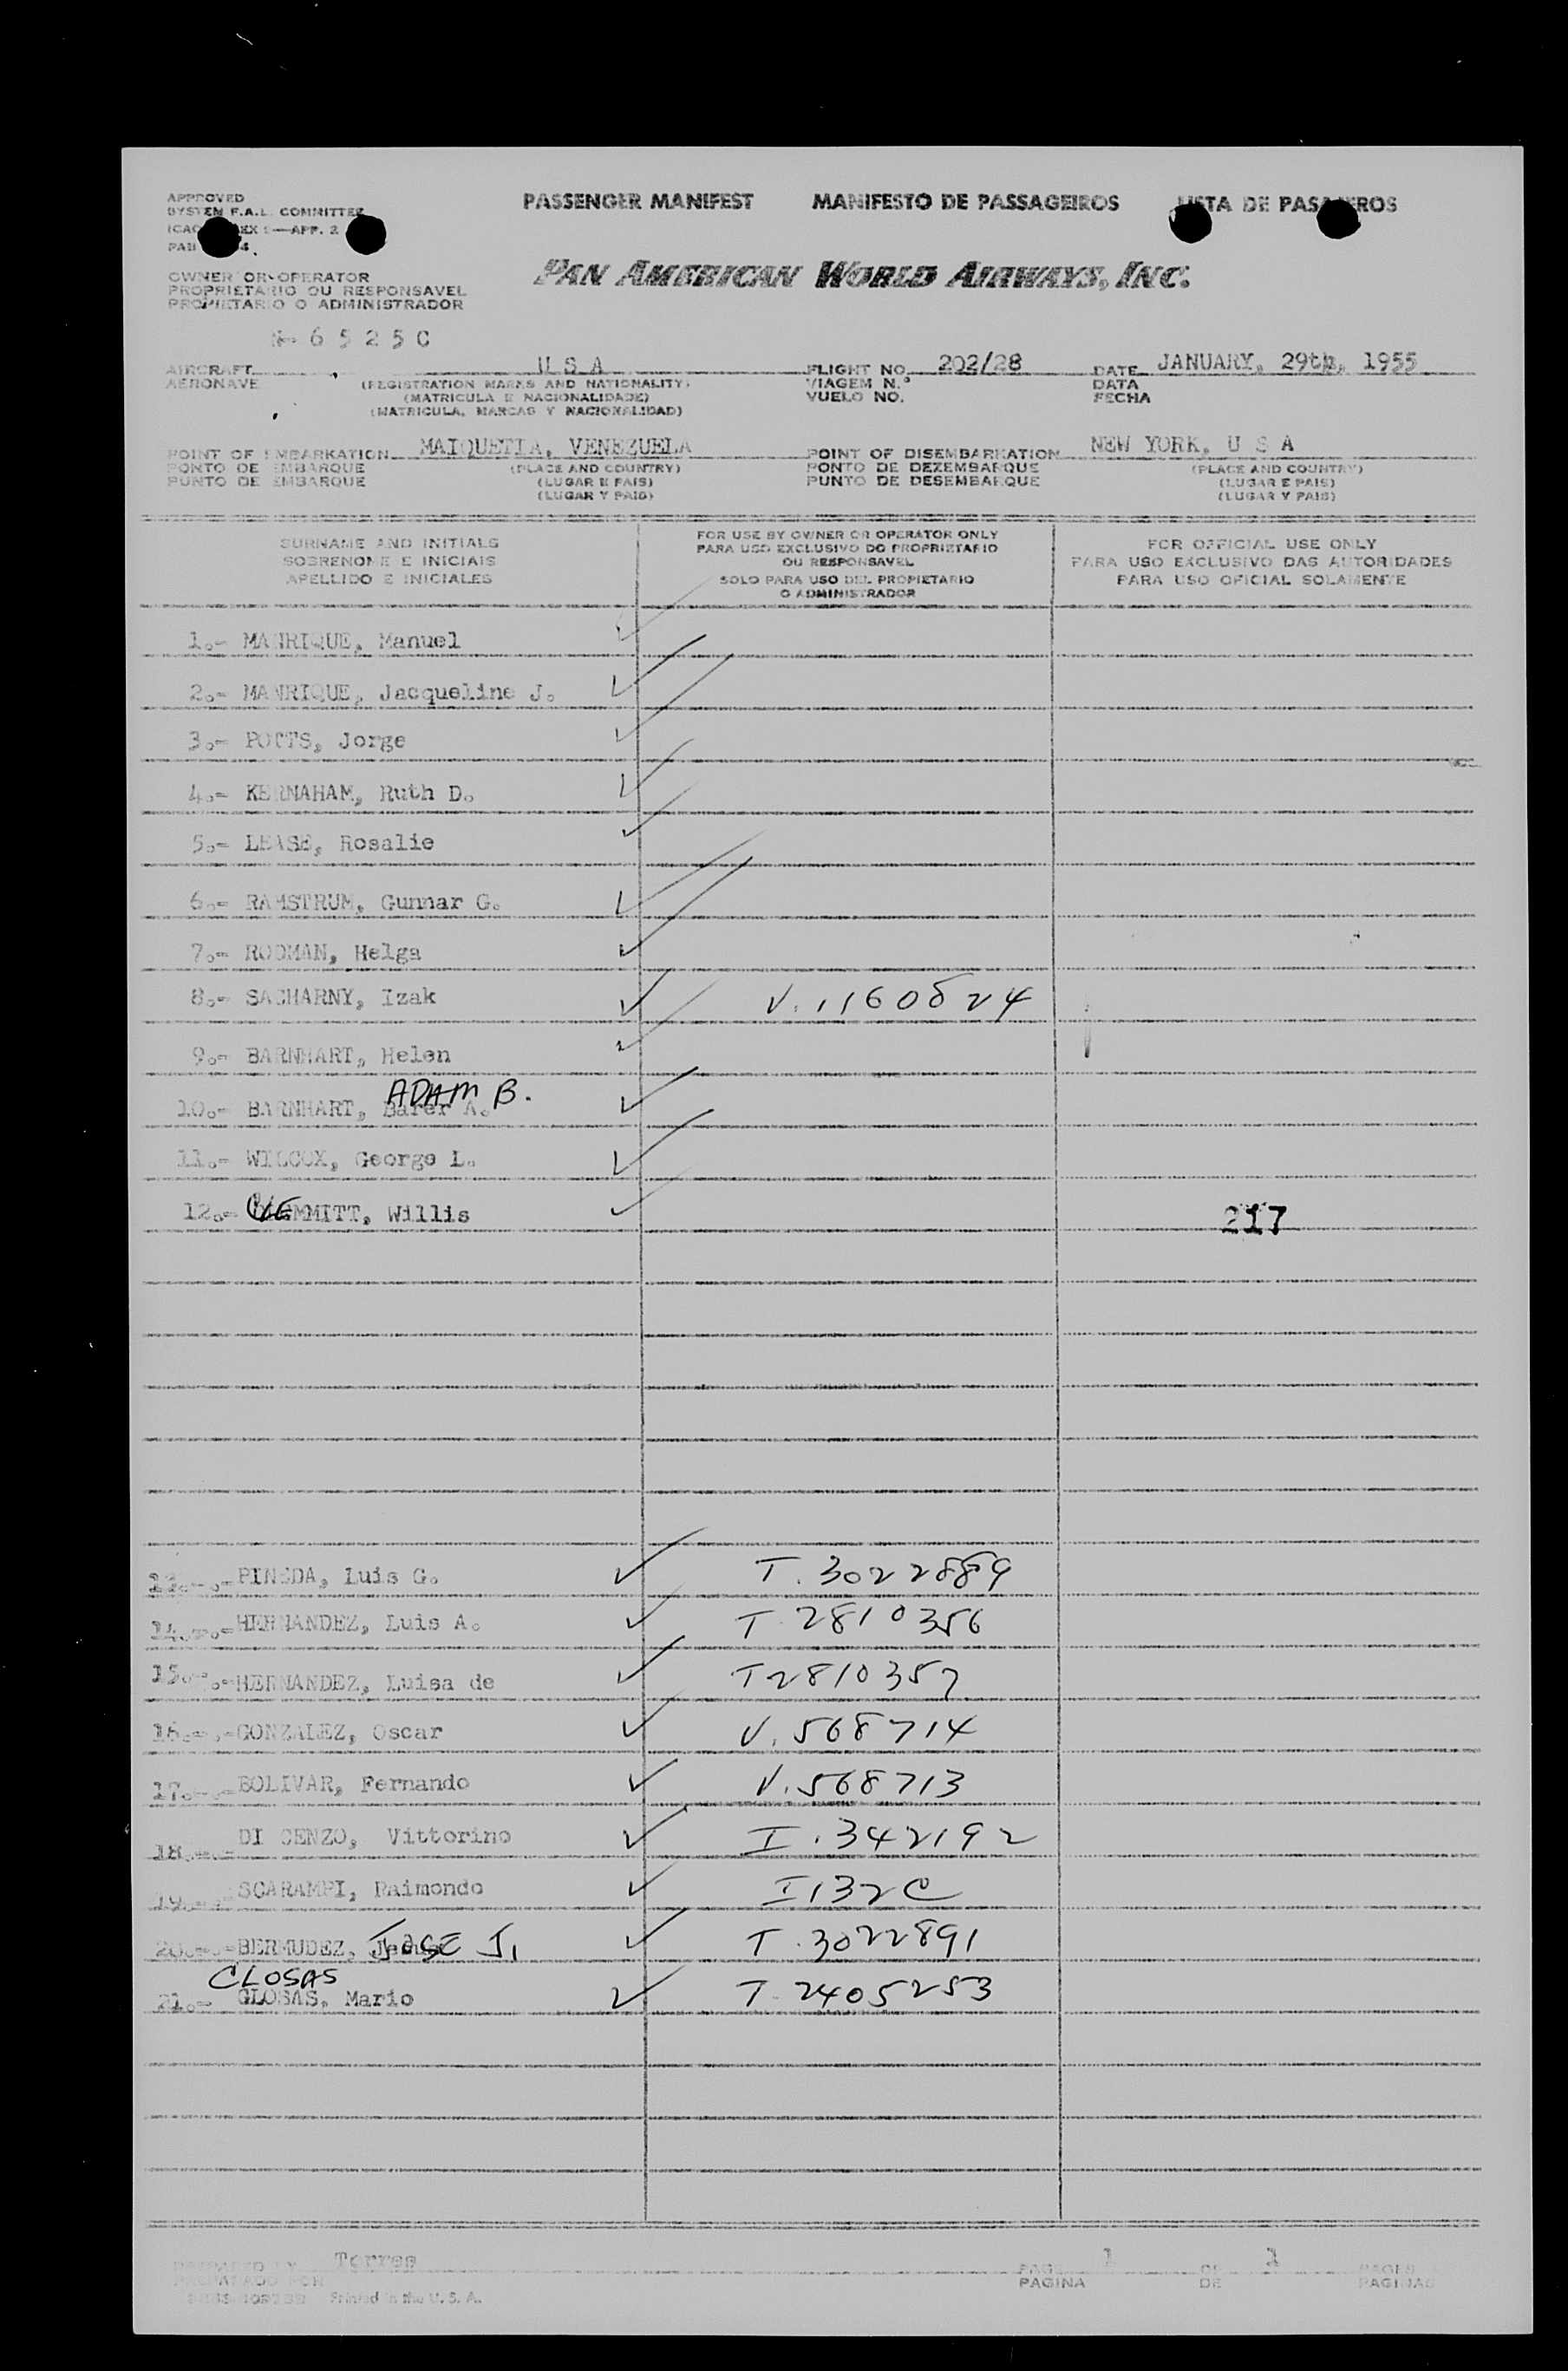 APPROVED
SYSTEM F.A.L. COMMITTEE
ICAO EX 1—APP. 2
PAN 4.
PASSENGER MANIFEST MANIFESTO DE PASSAGEIROS LISTA DE PASAJEROS
OWNER OR OPERATOR
PROPRIETARIO OU RESPONSAVEL
PROPIETARIO O ADMINISTRADOR
PAN AMERICAN WORLD AIRWAYS, INC.
N- 6 5 2 5 C
AIRCRAFT U S A FLIGHT NO. 202/28 DATE JANUARY, 29th, 1955
AERONAVE (REGISTRATION MARKS AND NATIONALITY) VIAGEM N.º DATA
(MATRICULA E NACIONALIDADE) VUELO NO. FECHA
(MATRICULA, MARCAS Y NACIONALIDAD)
POINT OF EMBARKATION MAIQUETIA, VENEZUELA POINT OF DISEMBARKATION NEW YORK, U S A
PONTO DE EMBARQUE (PLACE AND COUNTRY) PONTO DE DEZEMBARQUE (PLACE AND COUNTRY)
PUNTO DE EMBARQUE (LUGAR E PAIS) PUNTO DE DESEMBARQUE (LUGAR E PAIS)
(LUGAR Y PAIS) (LUGAR Y PAIS)
SURNAME AND INITIALS
SOBRENOME E INICIAIS
APELLIDO E INICIALES
FOR USE BY OWNER OR OPERATOR ONLY
PARA USO EXCLUSIVO DO PROPRIETARIO
OU RESPONSAVEL
SOLO PARA USO DEL PROPIETARIO
O ADMINISTRADOR
FOR OFFICIAL USE ONLY
PARA USO EXCLUSIVO DAS AUTORIDADES
PARA USO OFICIAL SOLAMENTE
1.- MANRIQUE, Manuel
2.- MANRIQUE, Jacqueline J.
3.- POTTS, Jorge
4.- KERNAHAM, Ruth D.
5.- LEASE, Rosalie
6.- RAMSTRUM, Gunnar G.
7.- RODMAN, Helga
8.- SACHARNY, Izak V. 1160824
9.- BARNHART, Helen
ADAM B.
10.- BARNHART, Barer A.
11.- WILCOX, George L.
12.- MMITT, Willis 217
13.- PINEDA, Luis G. T. 3022889
14.- HERNANDEZ, Luis A. T. 2810356
15.- HERNANDEZ, Luisa de T2810357
16.- GONZALEZ, Oscar V. 568714
17.- BOLIVAR, Fernando V. 568713
18.- DI CENZO, Vittorino I. 342192
19.- SCARAMPI, Raimondo I 132C
20.- BERMUDEZ, JOSE J. T. 3022891
CLOSAS
21.- GLOSAS, Mario T. 2405253
PREPARED BY Torres PAGE 1 OF 1 PAGES
PREPARADO POR PAGINA DE PAGINAS
Printed in the U. S. A.